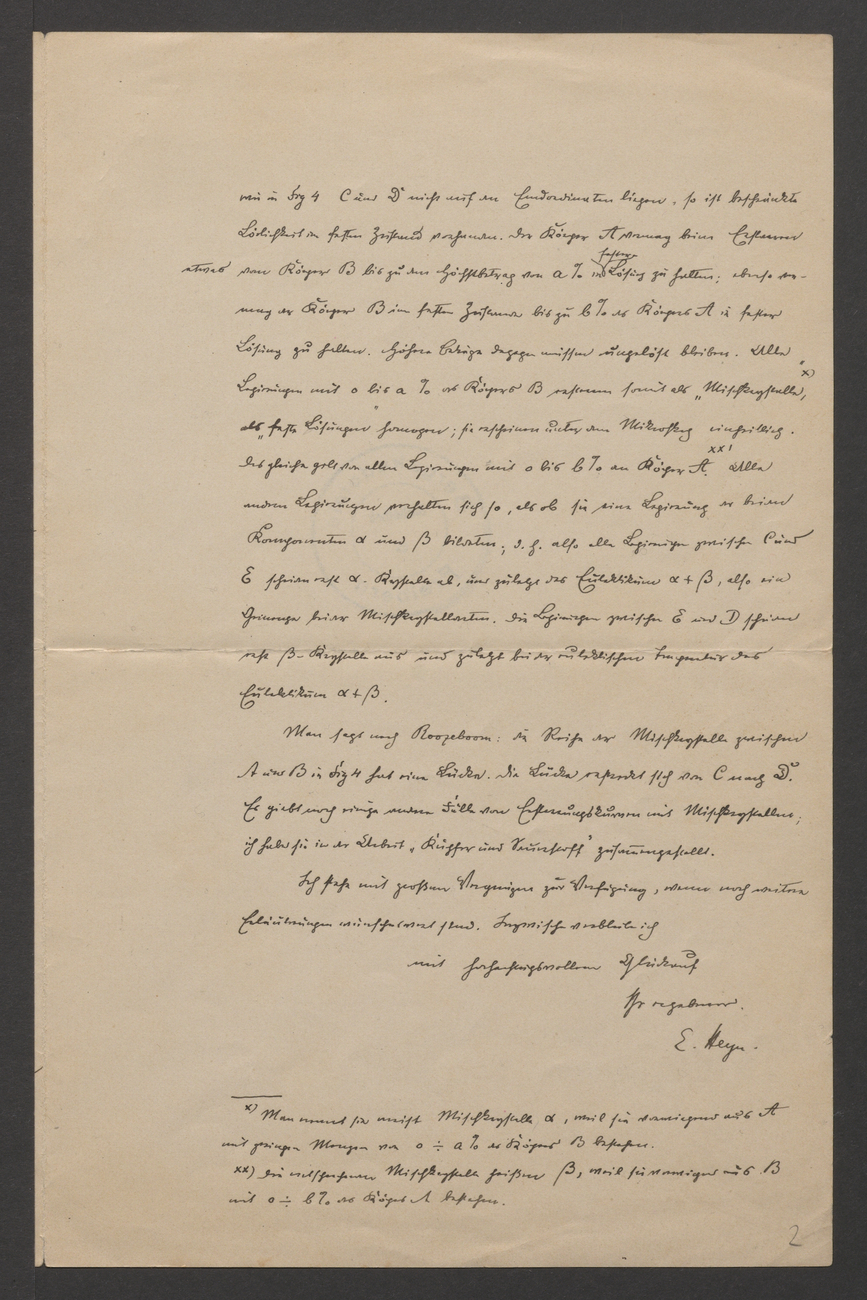 wie in Fig 4 C und D nicht auf den Endordinaten liegen, so ist beschränkte
Löslichkeit im festen Zustand vorhanden. Der Körper A vermag beim Erstarren
etwas vom Körper B bis zu dem Höchstbetrag von a % in fester Lösung zu halten; ebenso ver-
mag der Körper B im festen Zustande bis zu b % des Körpers A in fester
Lösung zu halten. Höhere Beträge dagegen müssen ungelöst bleiben. Alle
Legierungen mit o bis a % des Körpers B erstarren somit als „Mischkrystalle“, x)
als „feste Lösungen“ homogen; sie erscheinen unter dem Mikroskop einheitlich.
Das gleiche gilt von allen Legierungen mit o bis b % an Körper A. xx) Alle
andern Legierungen verhalten sich so, als ob sie eine Legierung der beiden
Komponenten α und β bildeten; d. h. also alle Legierungen zwischen C und
E scheiden erst α-Krystalle ab, und zuletzt das Eutektikum α + β, also ein
Gemenge beider Mischkrystallarten. Die Legierungen zwischen E und D scheiden
erst β-Krystalle aus und zuletzt bei der eutektischen Temperatur das
Eutektikum α + β.
Man sagt nach Roozeboom: die Reihe der Mischkrystalle zwischen
A und B in Fig 4 hat eine Lücke. Die Lücke erstreckt sich von C nach D.
Es giebt noch einige andere Fälle von Erstarrungskurven mit Mischkrystallen;
ich habe sie in der Arbeit „Kupfer und Sauerstoff“ zusammengestellt.
Ich stehe mit grossem Vergnügen zur Verfügung, wenn noch weitere
Erläuterungen wünschenswert sind. Inzwischen verbleibe ich
mit hochachtungsvollem Glückauf
Ihr ergebener.
E. Heyn.
x) Man nennt sie meist Mischkrystalle α, weil sie vorwiegend aus A
mit geringen Mengen von o ÷ a % des Körpers B bestehen.
xx) Die entsprechenden Mischkrystalle heißen β, weil sie vorwiegend aus B
mit o ÷ b % des Körpers A bestehen.
2